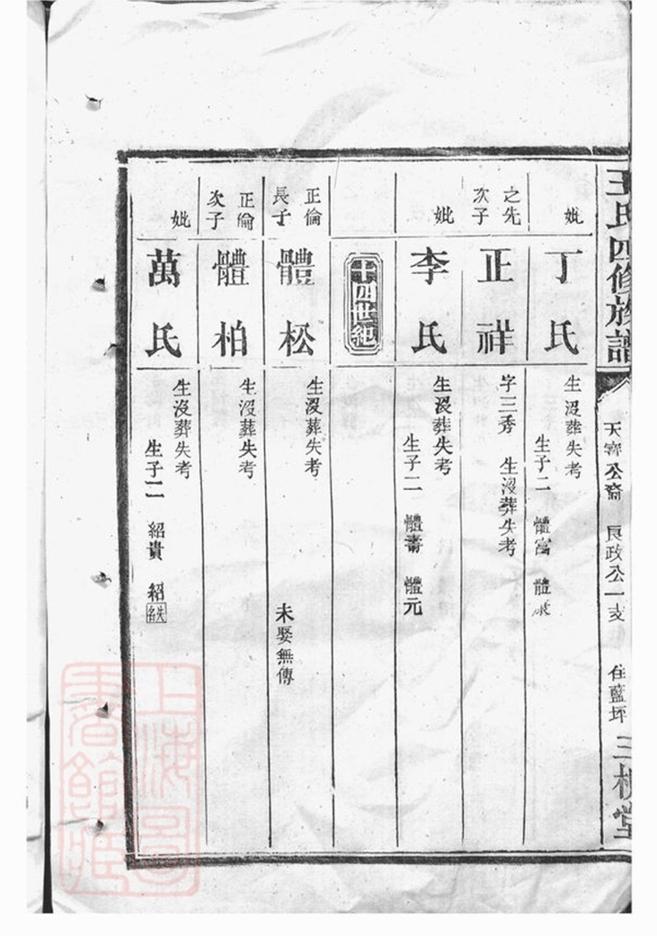 王氏四修族譜
天 公裔 良政公一支 住藍坪
三槐堂
妣 丁氏 生沒葬失考
生子二 體富 體
之先次子 正祥 字三秀 生沒葬失考
妣 李氏 生沒葬失考
生子二 體壽 體元
十四世紀
正倫長子 體松 生沒葬失考 未娶無傳
正倫次子 體柏 生沒葬失考
妣 萬氏 生沒葬失考
生子二 紹貴 紹 名缺
上海圖書館藏